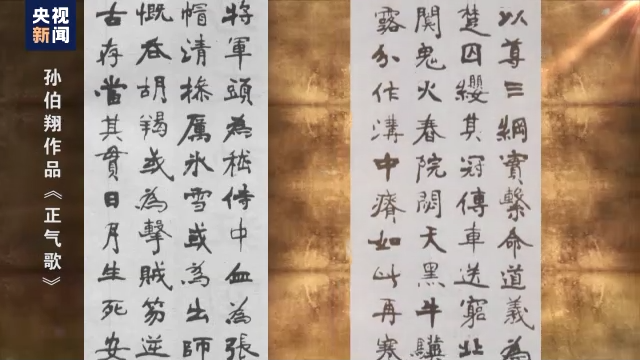 央视
新闻
孙伯翔作品《正气歌》
将軍頭為嵇侍中血為張
帽清操厲氷雪或為出師
慨吞胡羯或為擊賊笏逆
古存當其貫日月生死安
以尊三綱實繫命道義為
楚囚纓其冠傳車送窮北
闃鬼火春院閟天黑牛驥
露分作溝中瘠如此再寒